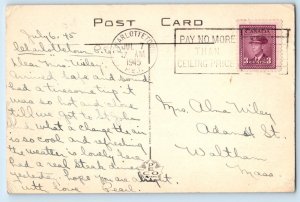 POST CARD
July 6, 45
Charlottetown P.E.I.
Dear Mrs. Wiley:
Arrived safe and sound
had a tiresome trip it
was so hot and close
till we got to St John
what a change the air
is so cool and refreshing
the weather is lovely here
had a real steak dinner
hope you are alright
with love Pearl.
CHARLOTTETOWN
JUL 7
1945
PAY NO MORE
THAN
CEILING PRICE
CANADA
3 3
Mrs Alma Wiley
Adams St.
Waltham
Mass.